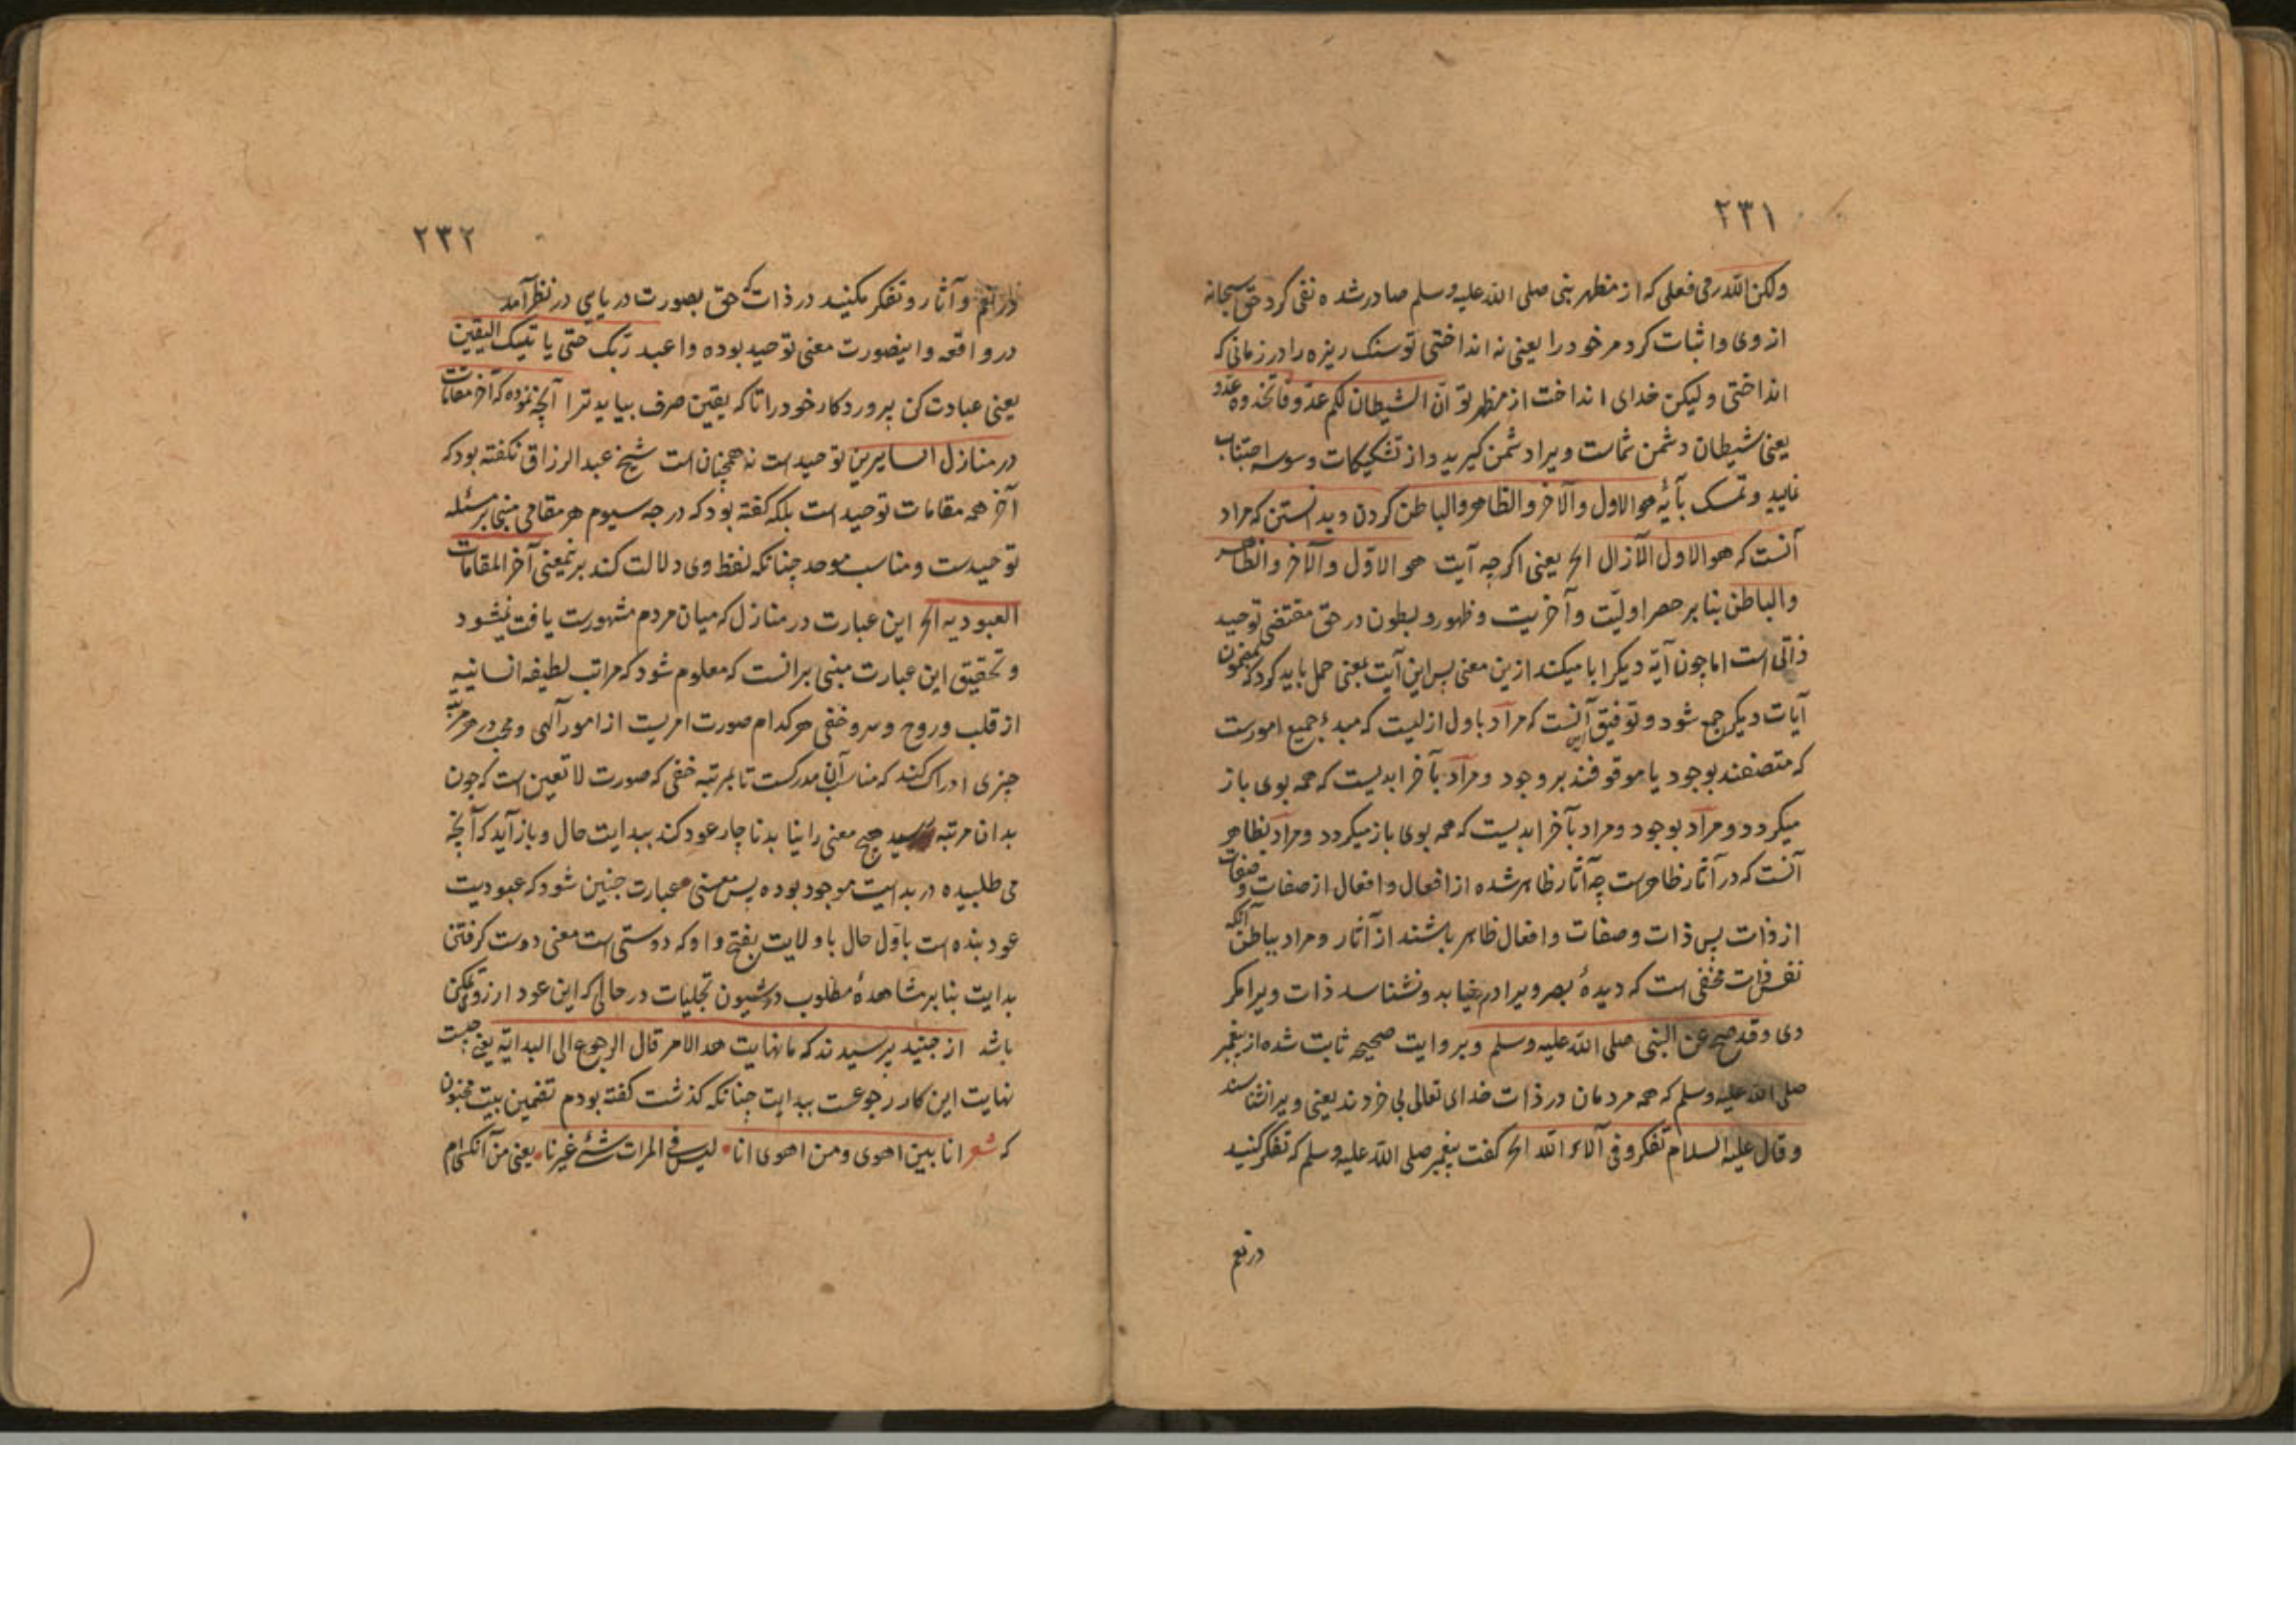 ۲۳۱
ولکن الله رمی فعلی که از مظهر نبی صلی الله علیه وسلم صادر شده نفی کرد حق سبحانه
از وی و اثبات کرد مر خود را یعنی نه انداختی تو سنک ریزه را در زمانی که
انداختی ولیکن خدای انداخت از مظهر تو ان الشیطان لکم عدو فاتخذوه عدو
یعنی شیطان دشمن شماست ویرا دشمن کیرید و از تشکیکات و وسوسه اجتناب
نمایید و تمسک بآیهٔ هو الاول والآخر والظاهر والباطن کردن و بدانستن که مراد
آنست که هو الاول الآزال الخ یعنی اکرچه آیت هو الاوّل والآخر والظاهر
والباطن بنا بر حصر اولیّت و آخریت و ظهور و بطون در حق مقتضی توحید
ذاتی است اما چون آیهٔ دیکر ابا میکند ازین معنی پس این آیت بمعنی حمل باید کرد که بمضمون
آیات دیکر جمع شود و توفیق آنست که مراد باول ازلیست که مبدءٔ جمیع امورست
که متصفند بوجود یا موقوفند بر وجود و مراد بآخر ابدیست که همه بوی باز
میکردد و مراد بوجود و مراد بآخر ابدیست که همه بوی باز میکردد و مراد بظاهر
آنست که در آثار ظاهرست چه آثار ظاهر شده از افعال و افعال از صفات و صفات
از ذات پس ذات و صفات و افعال ظاهر باشند از آثار و مراد بباطن آنکه
نفس ذات مخفی است که دیدهٔ بصر ویرا در نمییابد و نشناسد ذات ویرا مکر
وی وقد صح عن النبی صلی الله علیه وسلم و بروایت صحیحه ثابت شده از پیغمبر
صلی الله علیه وسلم که همه مردمان در ذات خدای تعالی بی خردند یعنی ویرا نشناسند
وقال علیه السلام تفکروا فی آلاء الله الخ کفت پیغمبر صلی الله علیه وسلم که تفکر کنید
در نعم
۲۳۲
در نعم و آثار و تفکر مکنید در ذات که حق بصورت دریای در نظر آمد
در واقعه و اینصورت معنی توحید بوده واعبد ربک حتی یاتیک الیقین
یعنی عبادت کن پروردکار خود را تا که یقین صرف بیاید ترا آنچه نموده که آخر مقامات
در منازل السایرین توحید است نه همچنان است شیخ عبد الرزاق نکفته بود که
آخر همه مقامات توحید است بلکه کفته بود که درجه سیوم هر مقامی مبنی بر مسئله
توحیدست و مناسب موحد چنانکه لفظ وی دلالت کند بر نمیعنی آخر المقامات
العبودیه الخ این عبارت در منازل که میان مردم مشهورست یافت نمیشود
و تحقیق این عبارت مبنی برانست که معلوم شود که مراتب لطیفه انسانیه
از قلب و روح و سر و خفی هر کدام صورت امریست از امور آلهی و محب در هر مرتبه
چیزی ادراک کند که مناسب آن مدرکست تا بمرتبه خفی که صورت لا تعین است که چون
بدان مرتبه رسید هیچ معنی را نیابد ناچار عود کند ببدایت حال و باز آید که آنچه
می طلبیده در بدایت موجود بوده پس معنی عبارت چنین شود که عبودیت
عود بنده است باوّل حال با ولایت بفتح واو که دوستی است معنی دوست کرفتن
بدایت بنا بر مشاهدهٔ مطلوب در شیون تجلیات در حالی که این عود از روی تمکن
باشد از جنید پرسیدند که ما نهایت هذا الامر قال الرجوع الی البدایة یعنی چیست
نهایت این کار رجوعست ببدایت چنانکه کذشت کفته بودم تضمین بیت مجنون
که شعر انا بین اهوی ومن اهوی انا لیس فی المرات شئ غیرنا یعنی من آنکسم